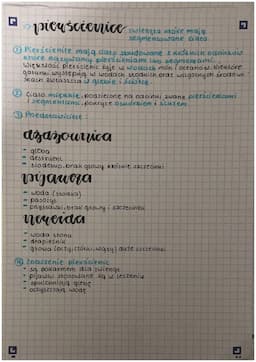 pierścienice zwierzęta które mają
segmentowane ciało
① Pierścienice mają ciało zbudowane z różnych odcinków
które nazywamy pierścieniami lub segmentami.
Większość pierścienic żyje w wodach mórz i oceanów. Niektóre
gatunki występują w wodach słodkich oraz wilgotnych środowi-
skach zwłaszcza w glebie i ściółce.
② Ciało miękkie, podzielone na odcinki zwane pierścieniami
/ segmentami, pokryte oskórkiem i śluzem.
③ Przedstawiciele:
dżdżownica
- gleba
- destruent
- siodełko, brak głowy
pijawka
- woda (słodka)
- pasożyt
- przyssawki, brak głowy i szczecinki
nereida
- woda słona
- drapieżnik
- głowa (oczy, czułki, wąsy) duże szczecinki
④ Znaczenie pierścienic
- są pokarmem dla zwierząt
- pijawki stosowane są w leczeniu
- spulchniają glebę
- oczyszczają wodę